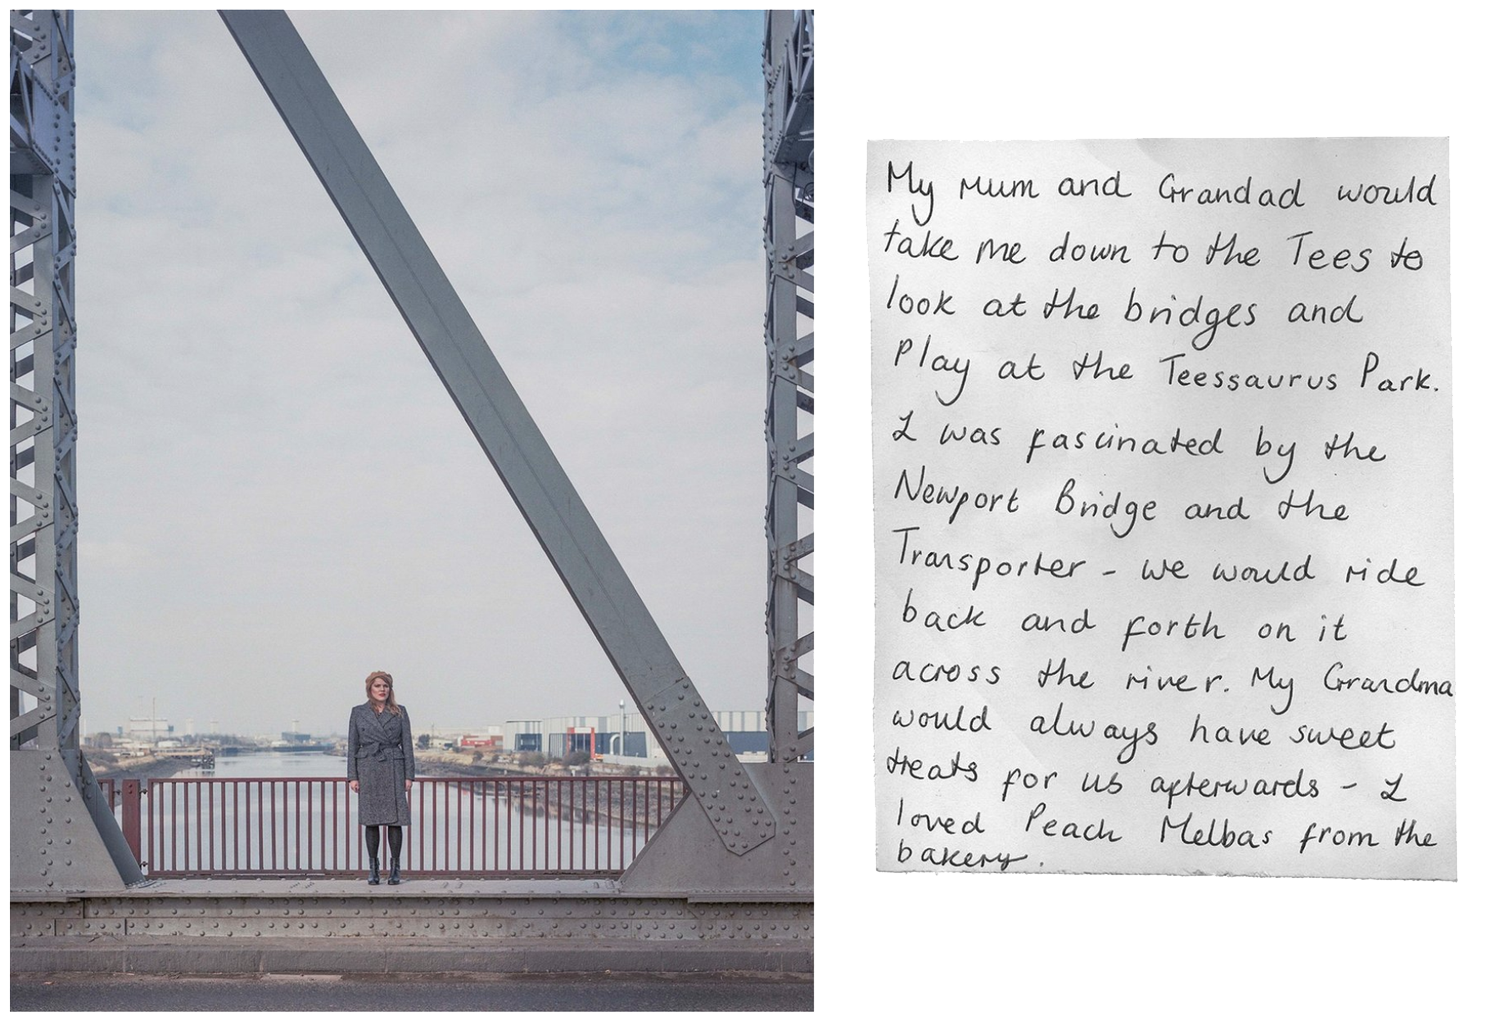 My Mum and Grandad would
take me down to the Tees to
look at the bridges and
Play at the Teessaurus Park.
I was fascinated by the
Newport Bridge and the
Transporter - we would ride
back and forth on it
across the river. My Grandma
would always have sweet
treats for us afterwards - I
loved Peach Melbas from the
bakery.